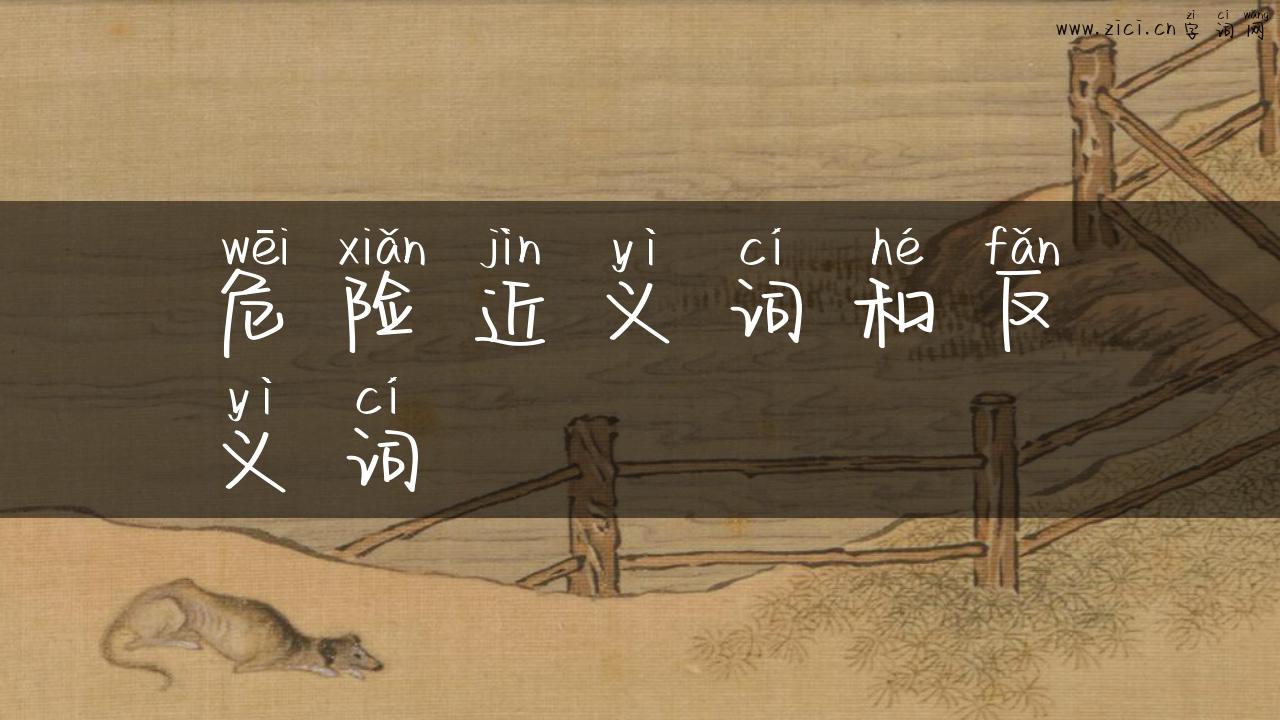 zì cí wǎng
www.zici.cn 字词网
wēi xiǎn jìn yì cí hé fǎn
危险近义词和反
yì cí
义词